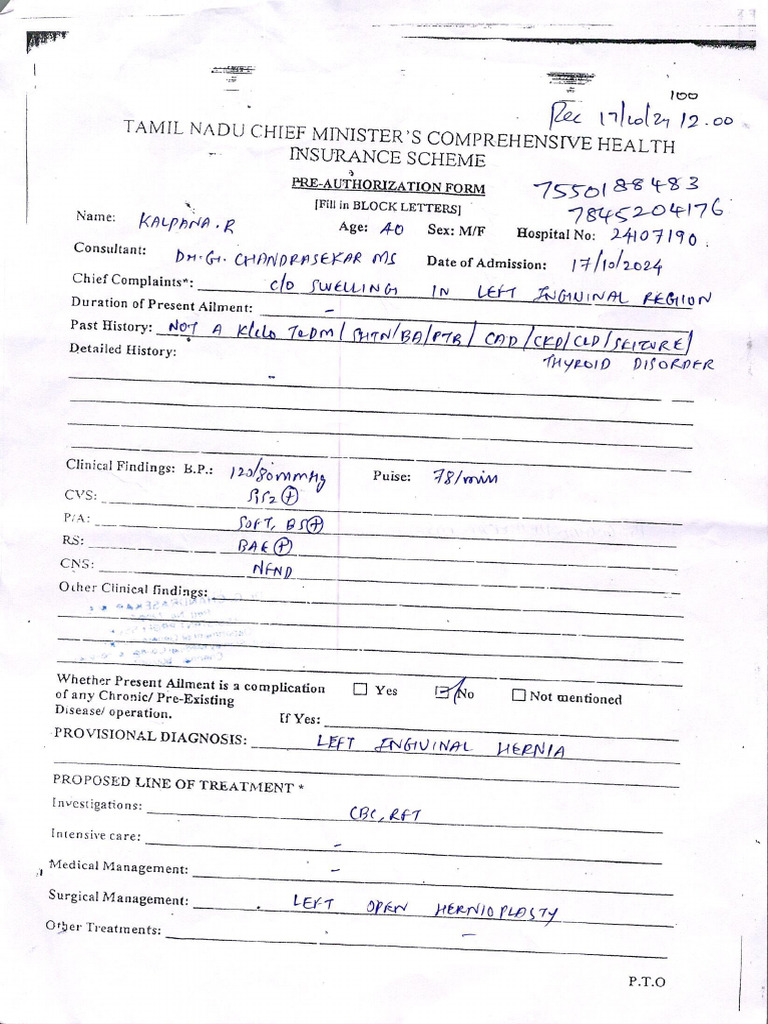 100
Rec 17/10/24 12.00
TAMIL NADU CHIEF MINISTER'S COMPREHENSIVE HEALTH
INSURANCE SCHEME
PRE-AUTHORIZATION FORM
7550188483
[Fill in BLOCK LETTERS]
7845204176
Name: KALPANA.R Age: 40 Sex: M/F Hospital No: 24107190.
Consultant: Dr.G. CHANDRASEKAR MS Date of Admission: 17/10/2024
Chief Complaints*: c/o SWELLING IN LEFT INGIUINAL REGION
Duration of Present Ailment: -
Past History: NOT A K/c/o T2DM/SHTN/BA/PTB/CAD/CKD/CLD/SEIZURE/
THYROID DISORDER
Detailed History:
-
Clinical Findings: B.P.: 120/80mmHg Pulse: 78/min
CVS: S1S2 (+)
P/A: SOFT, BS(+)
RS: BAE (+)
CNS: NFND
Other Clinical findings:
Whether Present Ailment is a complication ☐ Yes ☑ No ☐ Not mentioned
of any Chronic/ Pre-Existing
Disease/ operation. If Yes:
PROVISIONAL DIAGNOSIS: LEFT INGIUINAL HERNIA
PROPOSED LINE OF TREATMENT *
Investigations: CBC, RFT
Intensive care: -
Medical Management: -
Surgical Management: LEFT OPEN HERNIOPLASTY
Other Treatments: -
P.T.O